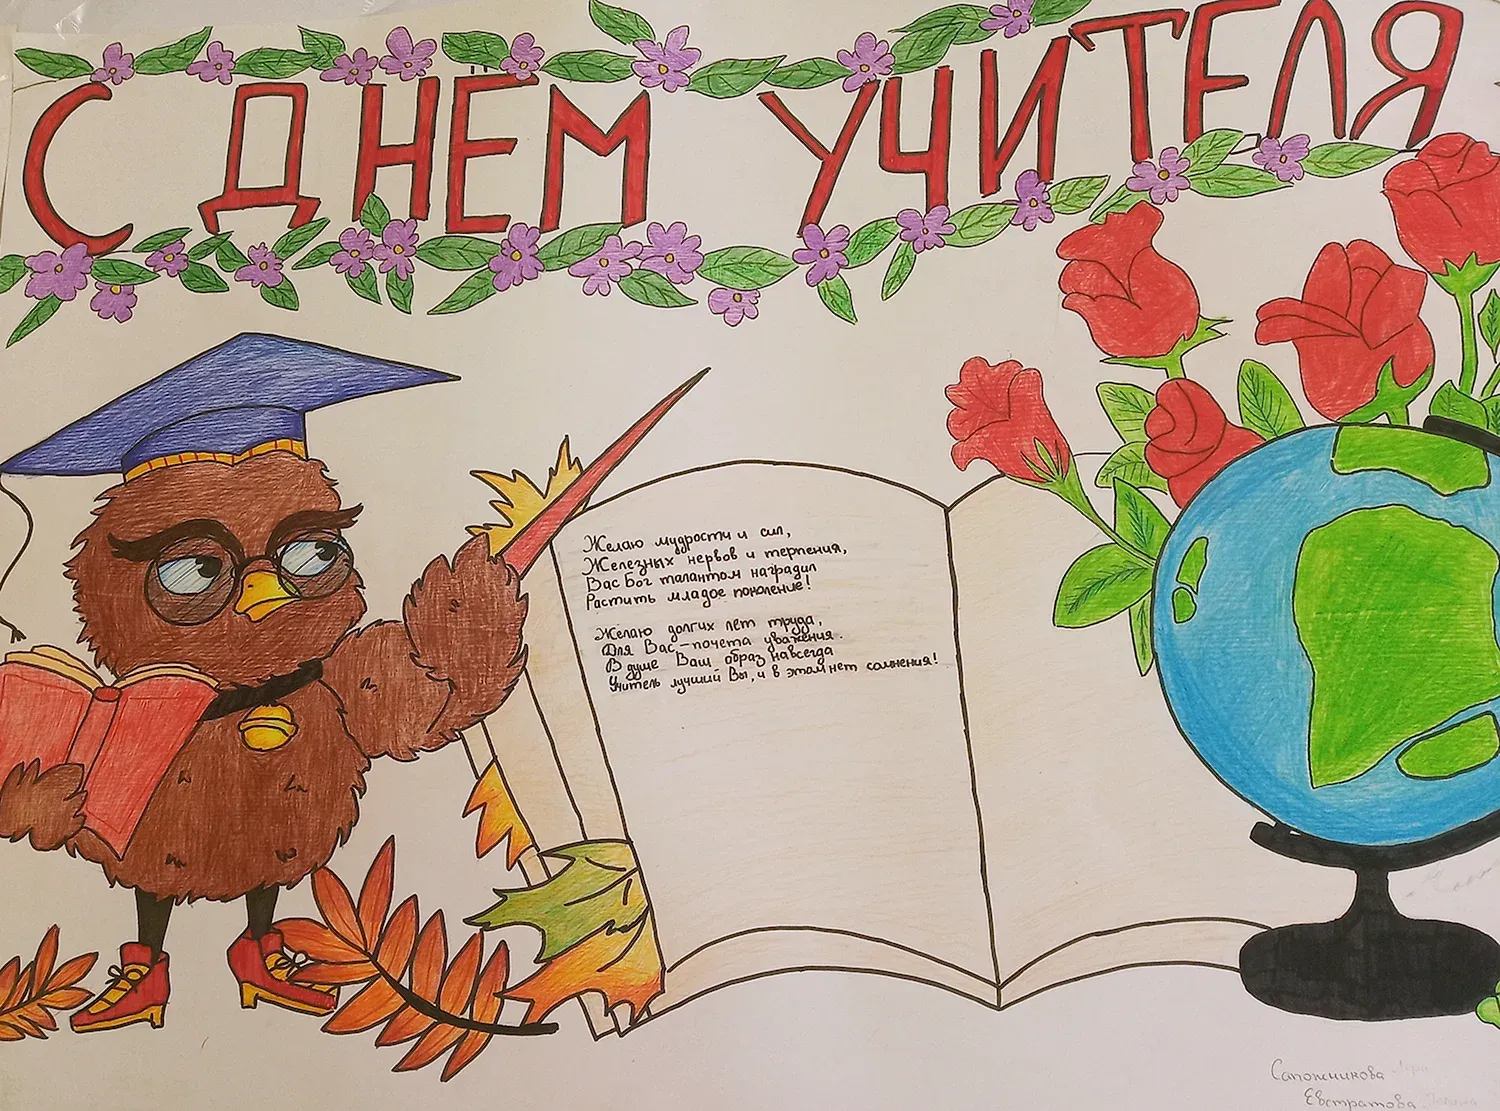 С ДНЁМ УЧИТЕЛЯ
Желаю мудрости и сил,
Железных нервов и терпения,
Вас Бог талантом наградил
Растить младое поколение!
Желаю долгих лет труда,
Для Вас-почета уважения.
В душе Ваш образ навсегда
Учитель лучший Вы, и в этом нет сомнения!
Сапожникова
Евстратова